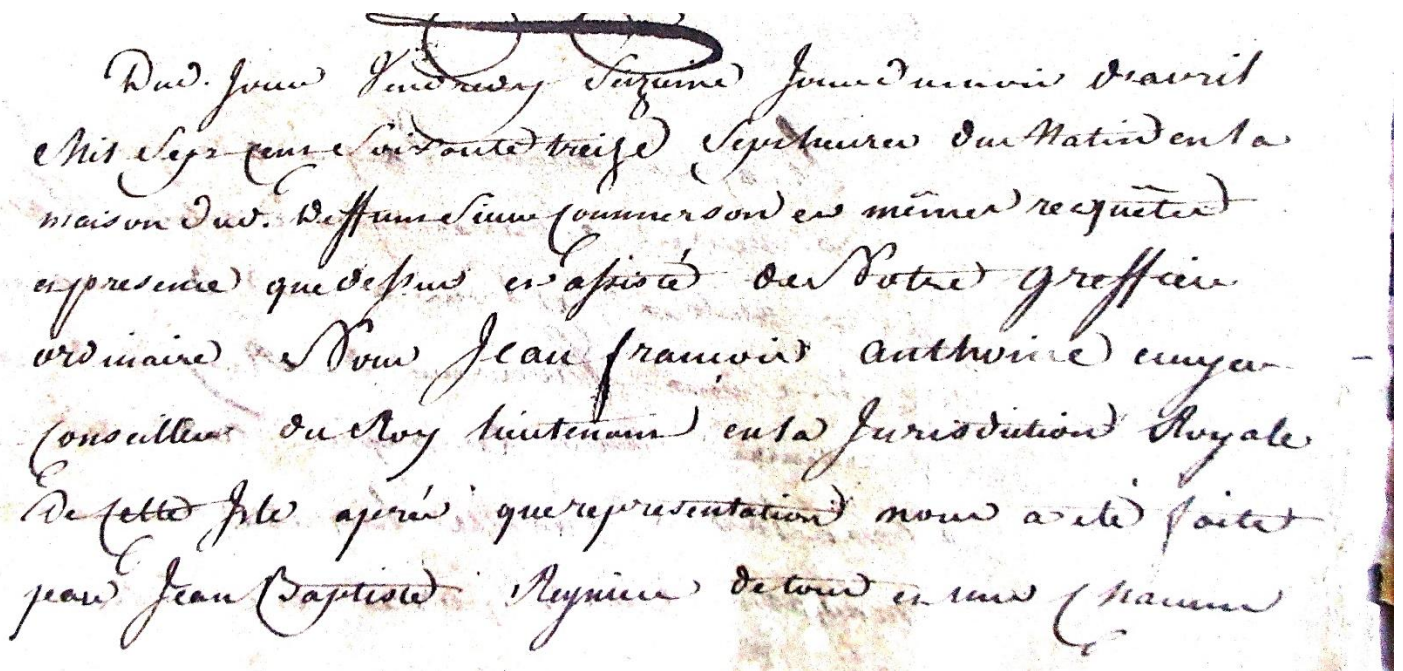 Dud. Jour Vendredy Seizieme Jour du mois d'avril
Mil Sept cent Soixante treize Sept heures du Matin en la
maison dud. deffunt Sieur Commerson es mêmes requêtes
et presence que dessus et assisté de Notre greffier
ordinaire Nous Jean françois anthoine
Conseiller du Roy lieutenant en la Jurisdiction Royale
De Cette Isle après que representation nous a été faite
par Jean Baptiste de tous et un Chacun